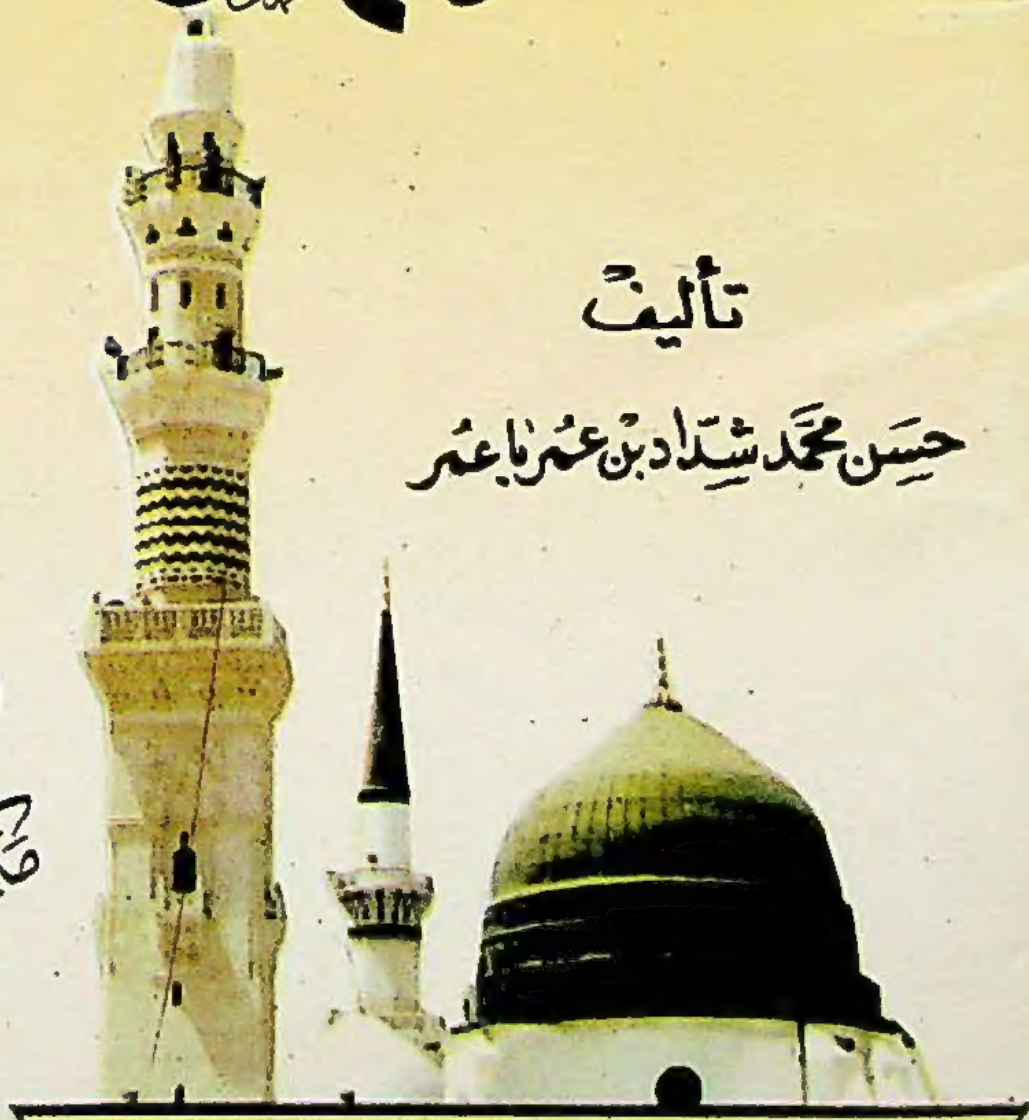 تأليف
حسَن محمَّد شدّاد بنْ عُمَر باعمَر